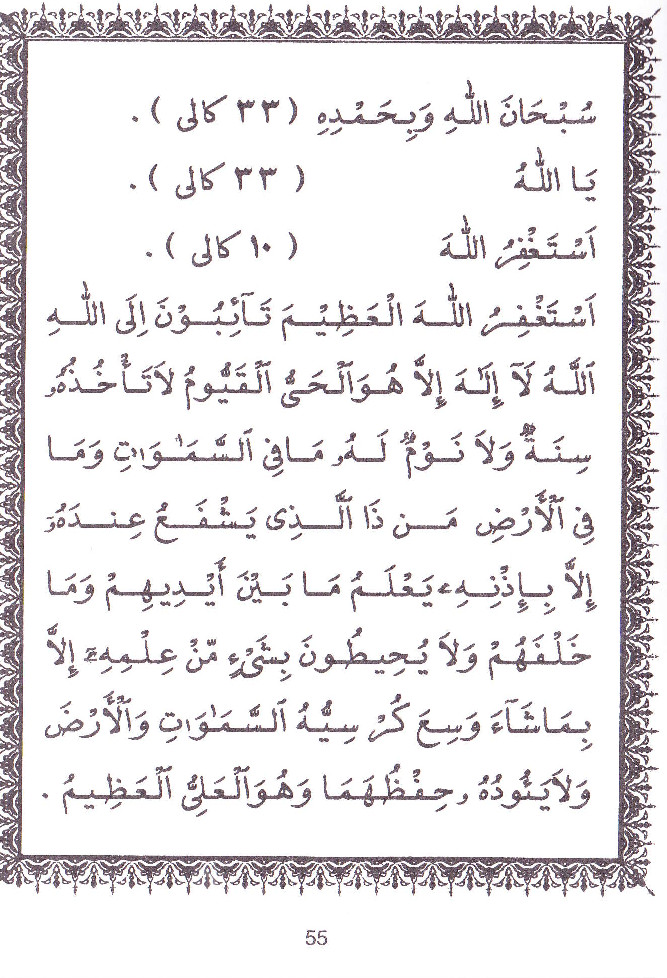 سُبْحَانَ اللّٰهِ وَبِحَمْدِهِ (٣٣ كالى).
يَا اللّٰهُ (٣٣ كالى).
اَسْتَغْفِرُ اللّٰهَ (١٠ كالى).
اَسْتَغْفِرُ اللّٰهَ الْعَظِيْمَ تَآئِبُوْنَ اِلَى اللّٰهِ
ٱللَّهُ لَآ إِلَـٰهَ إِلَّا هُوَٱلْحَىُّ ٱلْقَيُّومُ لَاتَأْخُذُهُۥ
سِنَةٌ وَلَا نَوْمٌ لَهُۥ مَافِى ٱلسَّمَـٰوَٰتِ وَمَا
فِى ٱلْأَرْضِ مَـن ذَا ٱلَّـذِى يَشْفَـعُ عِنـدَهُۥٓ
إِلَّا بِإِذْنِهِۦ يَعْلَمُ مَا بَيْنَ أَيْدِيهِمْ وَمَا
خَلْفَهُمْ وَلَا يُحِيطُونَ بِشَىْءٍ مِّنْ عِلْمِهِۦٓ إِلَّا
بِمَاشَآءَ وَسِعَ كُرْ سِيُّهُ ٱلسَّمَـٰوَٰتِ وَٱلْأَرْضَ
وَلَايَـُٔودُهُۥ حِفْظُهُمَا وَهُوَٱلْعَلِىُّ ٱلْعَظِيمُ.
55